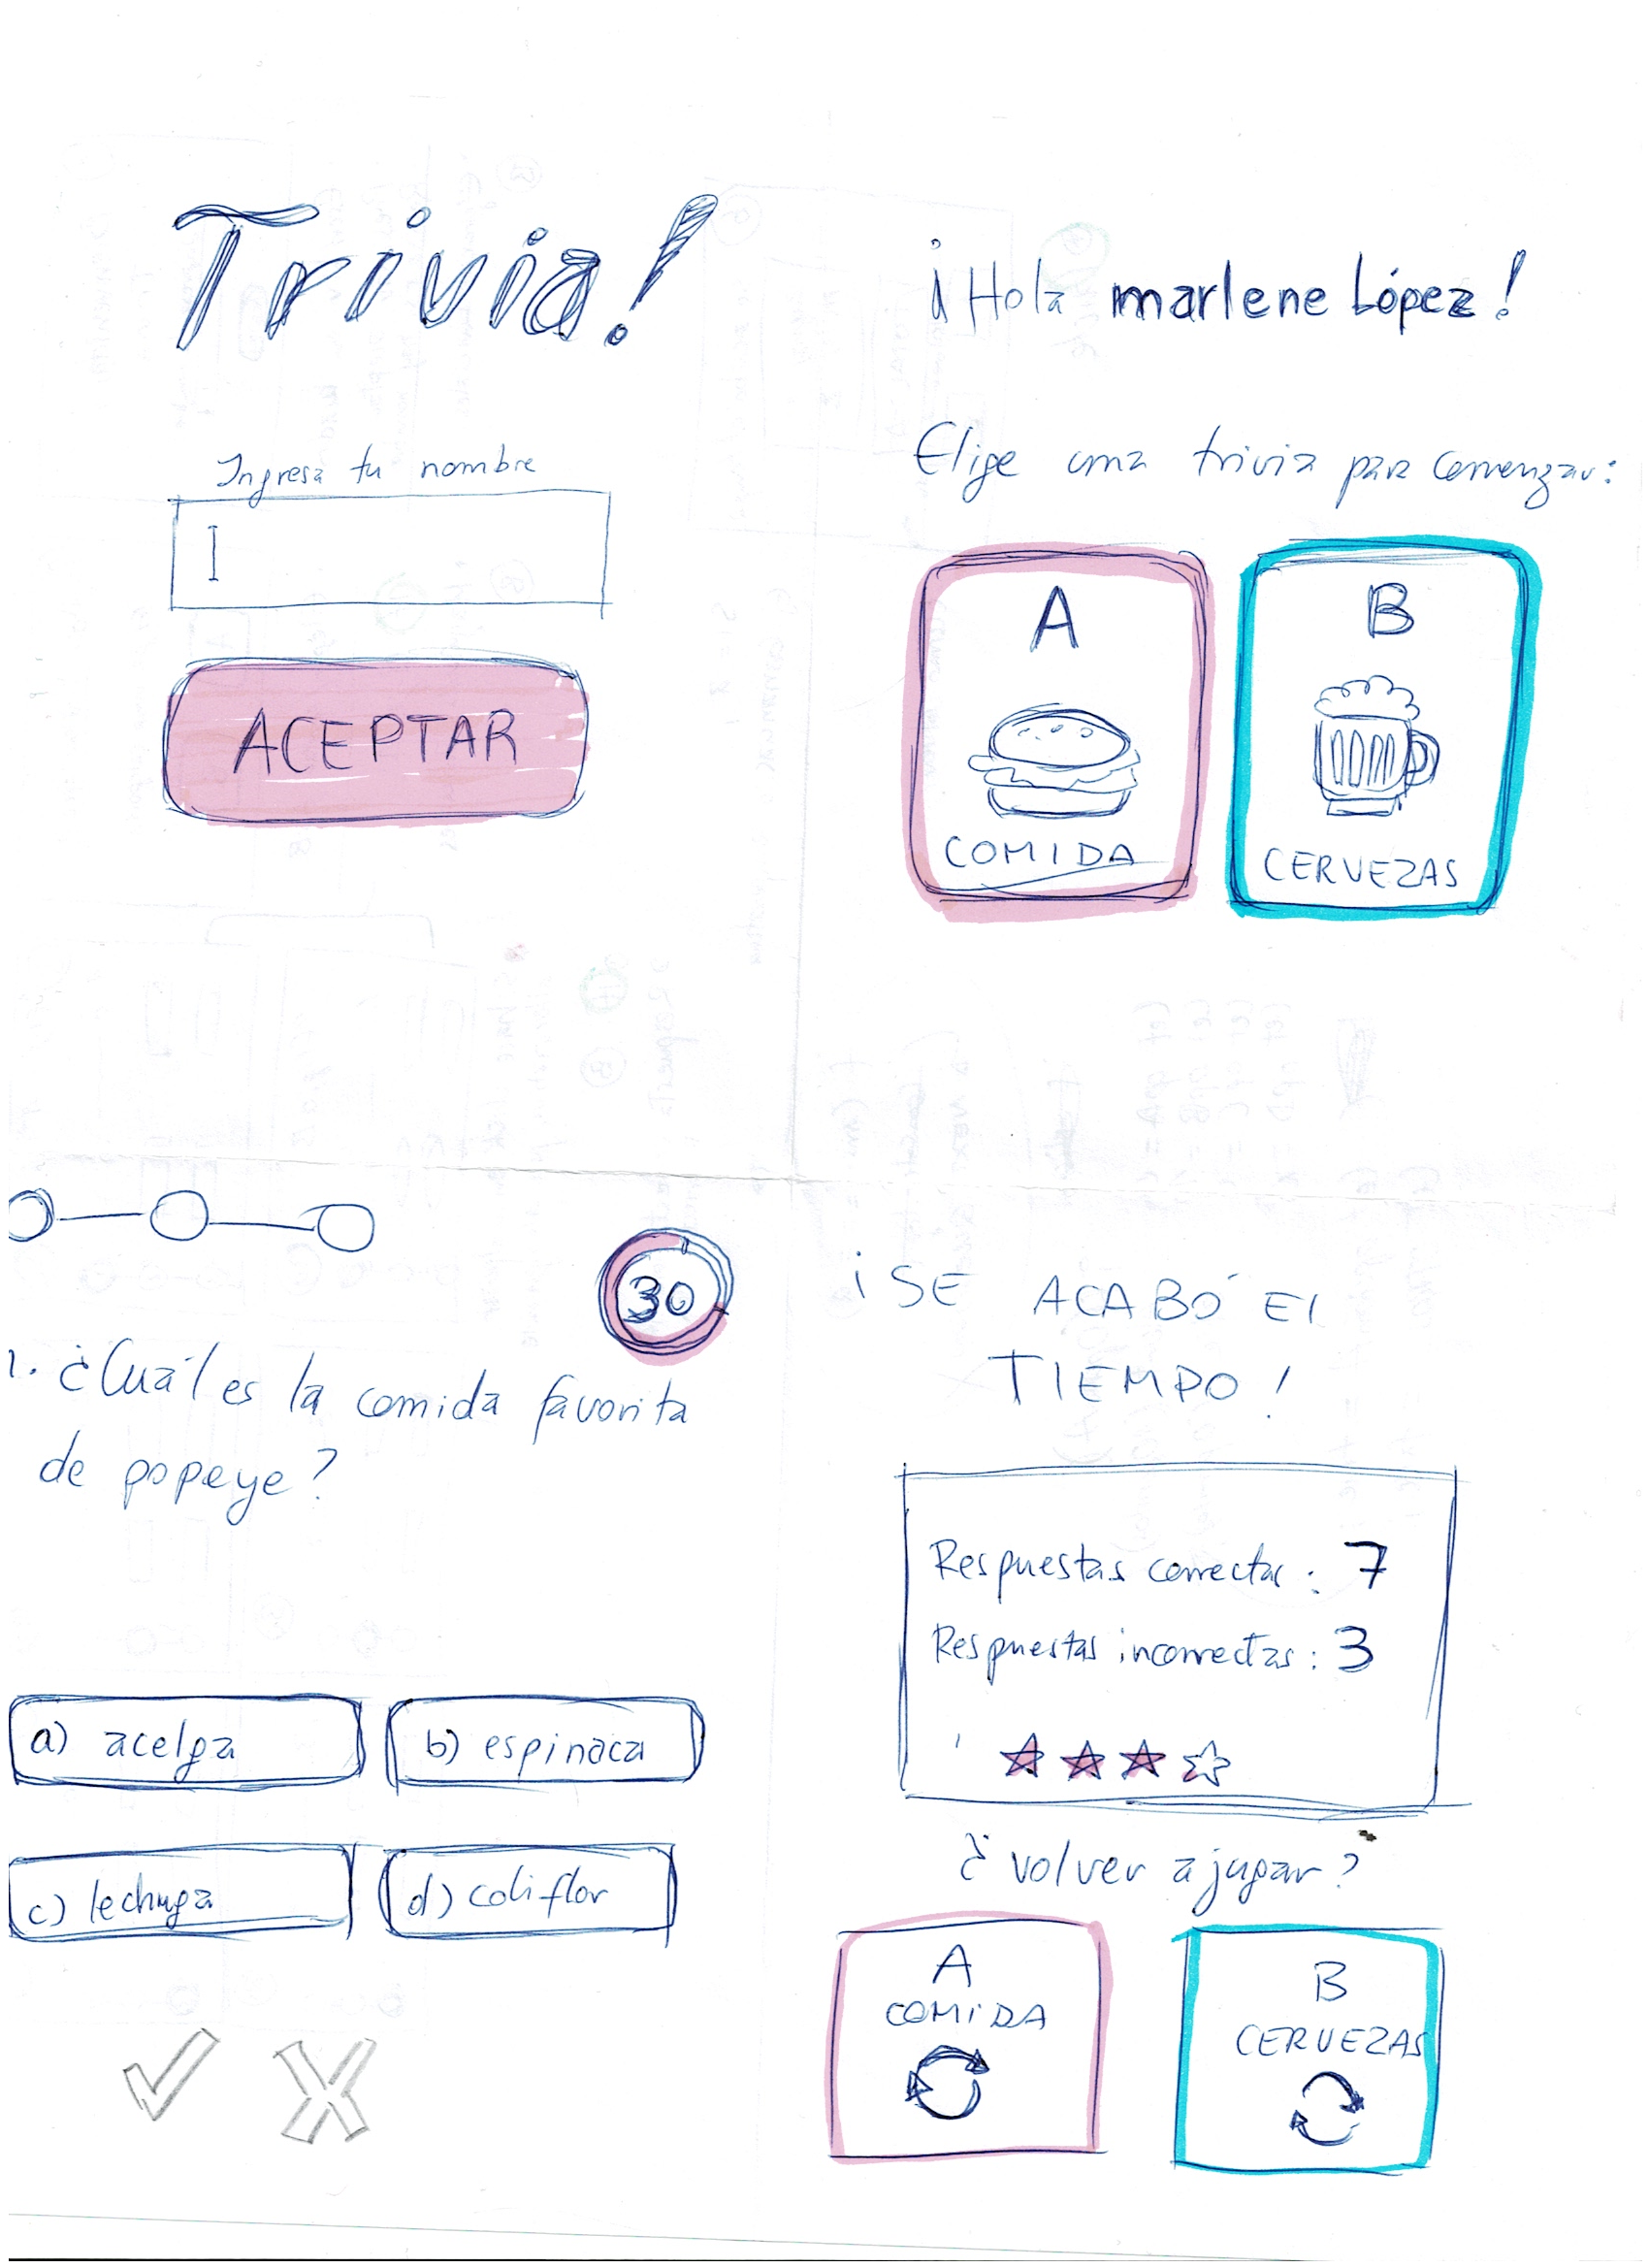 Trivia!
Ingresa tu nombre
ACEPTAR
¡Hola marlene López!
Elige una trivia para comenzar:
A
COMIDA
B
CERVEZAS
30
1. ¿Cuál es la comida favorita
de popeye?
a) acelga
b) espinaca
c) lechuga
d) coliflor
¡SE ACABÓ El
TIEMPO!
Respuestas correctas: 7
Respuestas incorrectas: 3
¿volver a jugar?
A
COMIDA
B
CERVEZAS